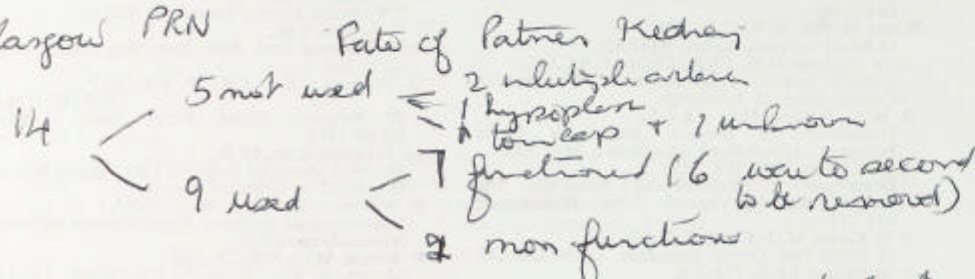 Glasgow PRN Fate of Partner Kedney
14
5 not used
2 multiple arteries
1 hypoplas
1 torn cap + 1 unknown
9 used
7 functioned (6 were to second to be removed)
2 non function